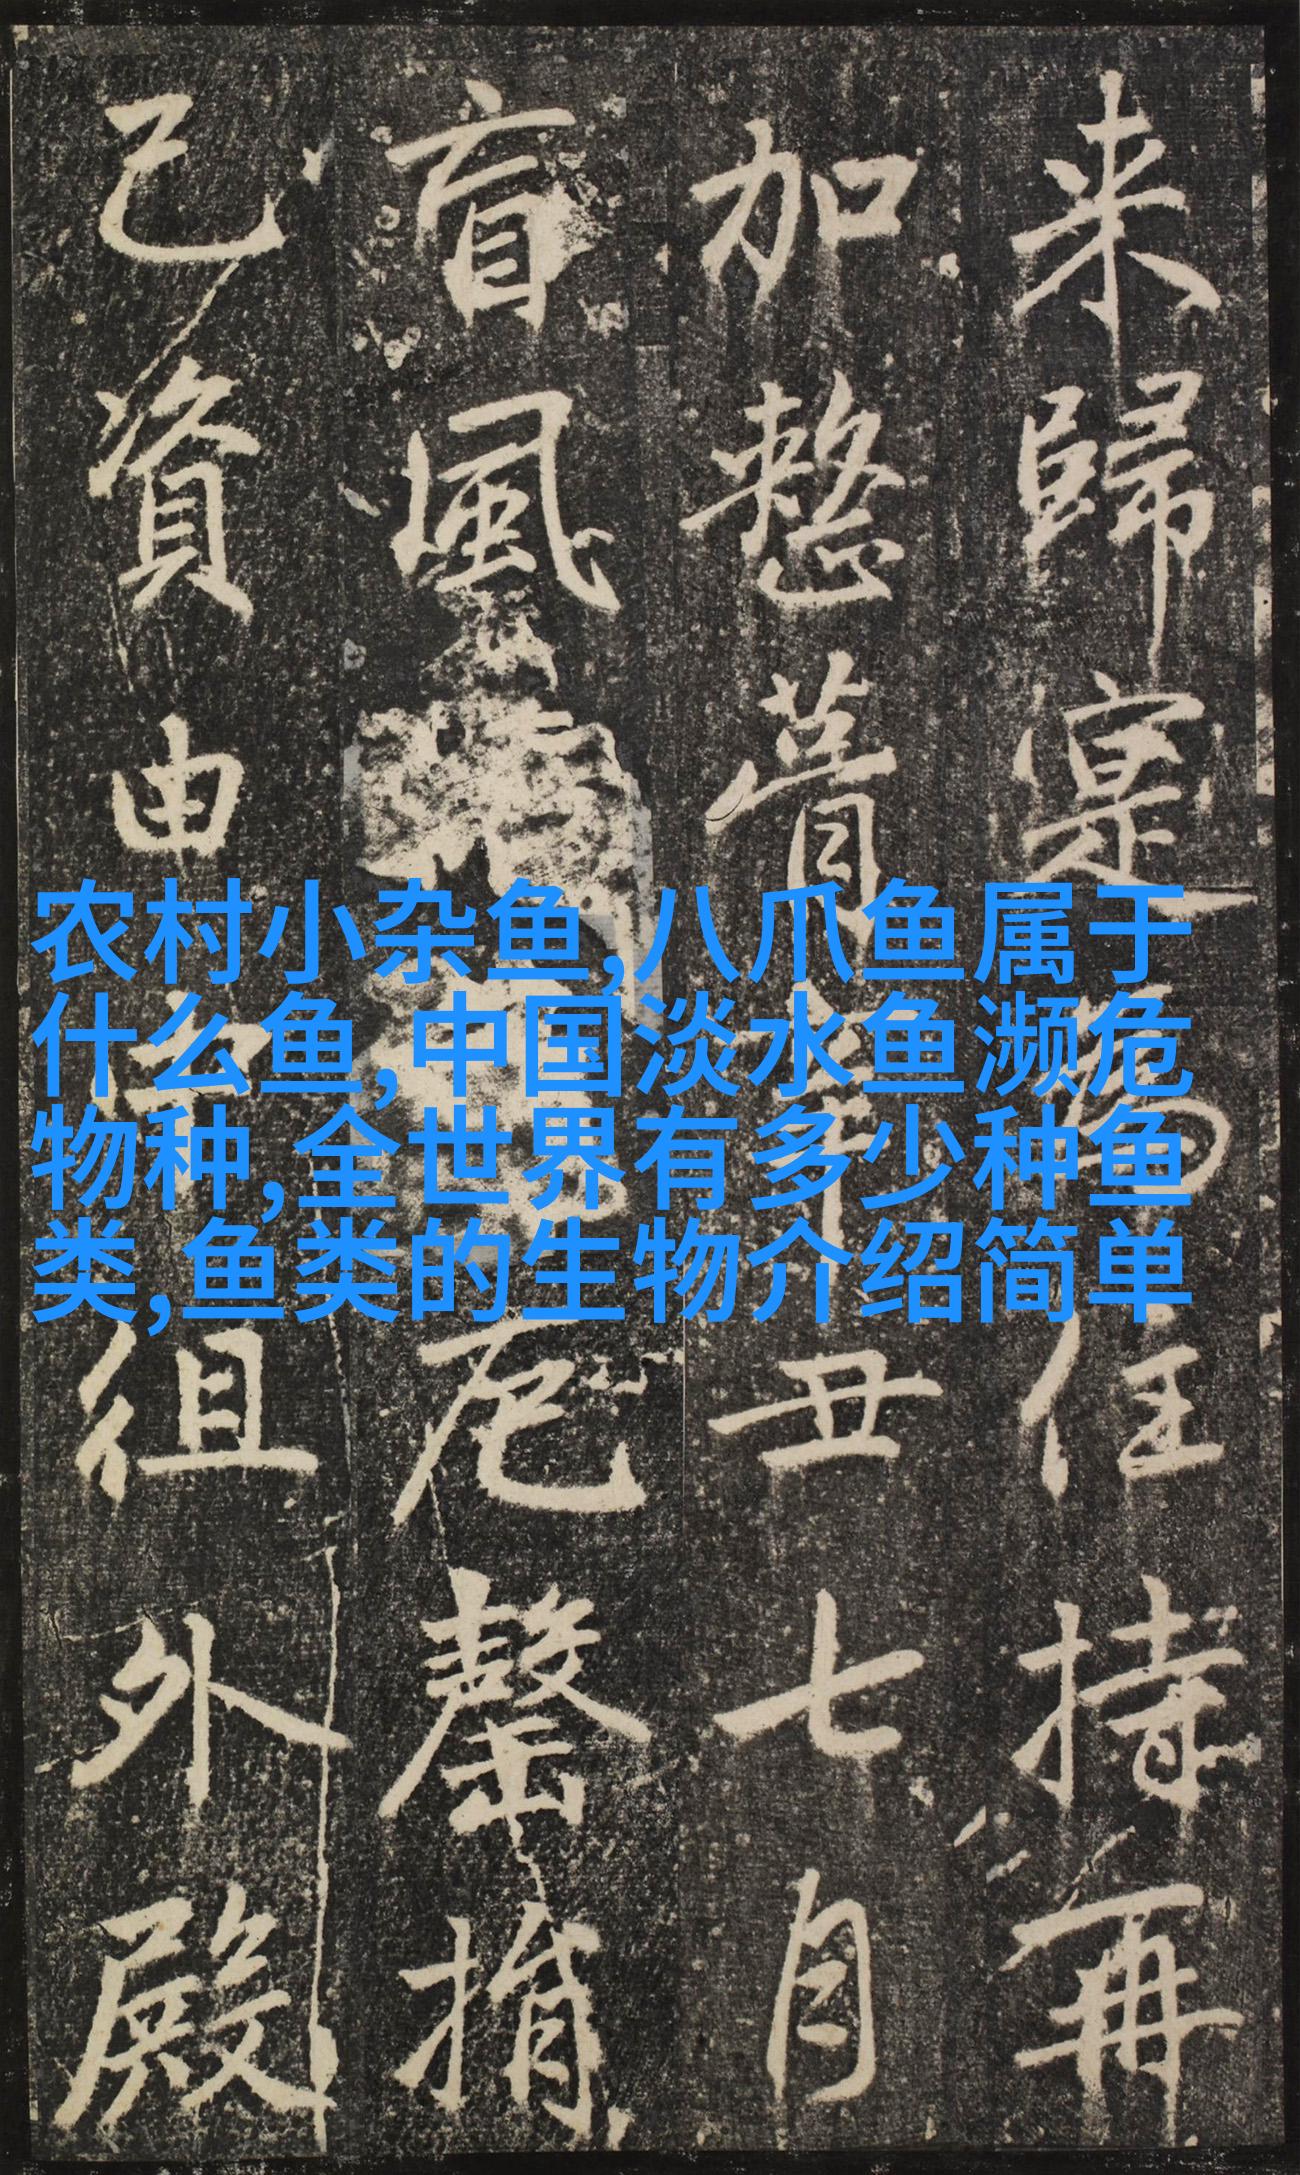 来歸寔住持再
加整葺丑七月
盲風罄捐
己資由徂外殿
农村小杂鱼,八爪鱼属于
什么鱼,中国淡水鱼濒危
物种,全世界有多少种鱼
类,鱼类的生物介绍简单